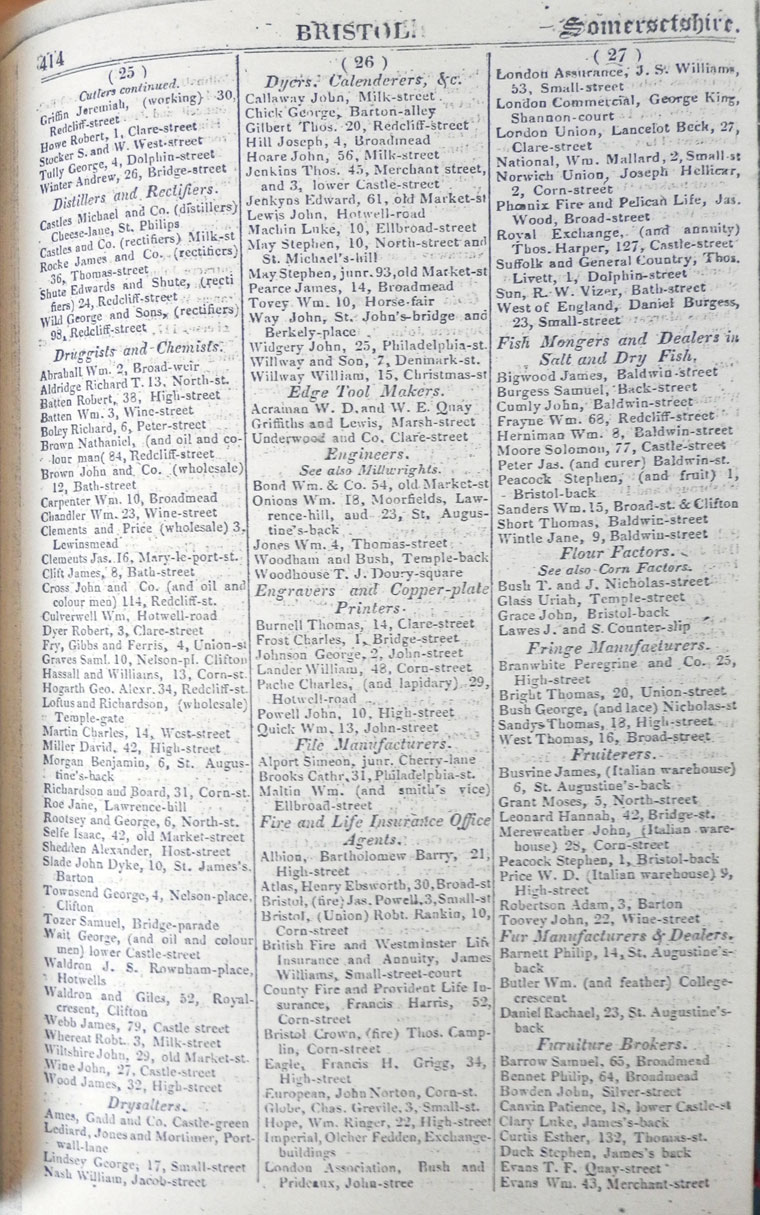 414
BRISTOL.
Somersetshire.
(25)
Cutlers continued.
Griffin Jeremiah, (working) 30,
Redcliff-street
Howe Robert, 1, Clare-street
Stocker S. and W. West-street
Tully George, 4, Dolphin-street
Winter Andrew, 26, Bridge-street
Distillers and Rectifiers.
Castles Michael and Co. (distillers)
Cheese-lane, St. Philips
Castles and Co. (rectifiers) Milk-st
Rocke James and Co. (rectifiers)
36, Thomas-street
Shute Edwards and Shute, (recti
fiers) 24, Redcliff-street
Wild George and Sons, (rectifiers)
98, Redcliff-street
Druggists and Chemists.
Abraball Wm. 2, Broad-weir
Aldridge Richard T. 13, North-st.
Batten Robert, 38, High-street
Batten Wm. 3, Wine-street
Boley Richard, 6, Peter-street
Brown Nathaniel, (and oil and co-
lour man( 84, Redcliff-street
Brown John and Co. (wholesale)
12, Bath-street
Carpenter Wm. 10, Broadmead
Chandler Wm. 23, Wine-street
Clements and Price (wholesale) 3,
Lewinsmead
Clements Jas. 16, Mary-le-port-st.
Clift James, 8, Bath-street
Cross John and Co. (and oil and
colour men) 114, Redcliff-st.
Culverwell Wm, Hotwell-road
Dyer Robert, 3, Clare-street
Fry, Gibbs and Ferris, 4, Union-st
Graves Saml. 10, Nelson-pl. Clifton
Hassall and Williams, 13, Corn-st.
Hogarth Geo. Alexr. 34, Redcliff-st.
Loftus and Richardson, (wholesale)
Temple-gate
Martin Charles, 14, West-street
Miller David, 42, High-street
Morgan Benjamin, 6, St. Augus-
tine's-back
Richardson and Board, 31, Corn-st.
Roe Jane, Lawrence-hill
Rootsey and George, 6, North-st.
Selfe Isaac, 42, old Market-street
Shedden Alexander, Host-street
Slade John Dyke, 10, St. James's
Barton
Townsend George, 4, Nelson-place,
Clifton
Tozer Samuel, Bridge-parade
Wait George, (and oil and colour
men) lower Castle-street
Waldron J. S. Rownham-place,
Hotwells
Waldron and Giles, 52, Royal-
crescent, Clifton
Webb James, 79, Castle street
Whereat Robt. 3, Milk-street
Wiltshire John, 29, old Market-st.
Wine John, 27, Castle-street
Wood James, 32, High-street
Drysalters.
Ames, Gadd and Co. Castle-green
Lediard, Jones and Mortimer, Port-
wall-lane
Lindsey George, 17, Small-street
Nash William, Jacob-street
(26)
Dyers, Calenderers, &c.
Callaway John, Milk-street
Chick George, Barton-alley
Gilbert Thos. 20, Redcliff-street
Hill Joseph, 4, Broadmead
Hoare John, 56, Milk-street
Jenkins Thos. 45, Merchant street,
and 3, lower Castle-street
Jenkyns Edward, 61, old Market-st
Lewis John, Hotwell-road
Machin Luke, 10, Ellbroad-street
May Stephen, 10, North-street and
St. Michael's-hill
May Stephen, junr. 93, old Market-st
Pearce James, 14, Broadmead
Tovey Wm. 10, Horse-fair
Way John, St. John's-bridge and
Berkely-place
Widgery John, 25, Philadelphia-st.
Willway and Son, 7, Denmark-st.
Willway William, 15, Christmas-st
Edge Tool Makers.
Acraman W. D. and W. E. Quay
Griffiths and Lewis, Marsh-street
Underwood and Co. Clare-street
Engineers.
See also Millwrights.
Bond Wm. & Co. 54, old Market-st
Onions Wm. 18, Moorfields, Law-
rence-hill, and 23, St. Augus-
tine's-back
Jones Wm. 4, Thomas-street
Woodham and Bush, Temple-back
Woodhouse T. J. Doury-square
Engravers and Copper-plate
Printers.
Burnell Thomas, 14, Clare-street
Frost Charles, 1, Bridge-street
Johnson George, 2, John-street
Lander William, 48, Corn-street
Pache Charles, (and lapidary) 29,
Hotwell-road
Powell John, 10, High-street
Quick Wm. 13, John-street
File Manufacturers.
Alport Simeon, junr. Cherry-lane
Brooks Cathr. 31, Philadelphia-st.
Maltin Wm. (and smith's vice)
Ellbroad-street
Fire and Life Insurance Office
Agents.
Albion, Bartholomew Barry, 21,
High-street
Atlas, Henry Ebsworth, 30, Broad-st
Bristol, (fire) Jas. Powell, 3, Small-st
Bristol, (Union) Robt. Rankin, 10,
Corn-street
British Fire and Westminster Life
Insurance and Annuity, James
Williams, Small-street-court
County Fire and Provident Life In-
surance, Francis Harris, 52,
Corn-street
Bristol Crown, (fire) Thos. Camp-
lin, Corn-street
Eagle, Francis H. Grigg, 34,
High-street
European, John Norton, Corn-st.
Globe, Chas. Grevile, 3, Small-st.
Hope, Wm. Ringer, 22, High-street
Imperial, Olcher Fedden, Exchange-
buildings
London Association, Bush and
Prideaux, John-stree
(27)
London Assurance, J. S. Williams,
53, Small-street
London Commercial, George King,
Shannon-court
London Union, Lancelot Beck, 27,
Clare-street
National, Wm. Mallard, 2, Small-st
Norwich Union, Joseph Hellicar,
2, Corn-street
Phœnix Fire and Pelican Life, Jas.
Wood, Broad-street
Royal Exchange, (and annuity)
Thos. Harper, 127, Castle-street
Suffolk and General Country, Thos.
Livett, 1, Dolphin-street
Sun, R. W. Vizer, Bath-street
West of England, Daniel Burgess,
23, Small-street
Fish Mongers and Dealers in
Salt and Dry Fish.
Bigwood James, Baldwin-street
Burgess Samuel, Back-street
Cumly John, Baldwin-street
Frayne Wm. 68, Redcliff-street
Herniman Wm. 8, Baldwin-street
Moore Solomon, 77, Castle-street
Peter Jas. (and curer) Baldwin-st.
Peacock Stephen, (and fruit) 1,
Bristol-back
Sanders Wm. 15, Broad-st. & Clifton
Short Thomas, Baldwin-street
Wintle Jane, 9, Baldwin-street
Flour Factors.
See also Corn Factors.
Bush T. and J. Nicholas-street
Glass Uriah, Temple-street
Grace John, Bristol-back
Lawes J. and S. Counter-slip
Fringe Manufacturers.
Branwhite Peregrine and Co. 25,
High-street
Bright Thomas, 20, Union-street
Bush George, (and lace) Nicholas-st
Sandys Thomas, 18, High-street
West Thomas, 16, Broad-street
Fruiterers.
Busvine James, (Italian warehouse)
6, St. Augustine's-back
Grant Moses, 5, North-street
Leonard Hannah, 42, Bridge-st.
Mereweather John, (Italian ware-
house) 28, Corn-street
Peacock Stephen, 1, Bristol-back
Price W. D. (Italian warehouse) 9,
High-street
Robertson Adam, 3, Barton
Toovey John, 22, Wine-street
Fur Manufacturers & Dealers.
Barnett Philip, 14, St. Augustine's-
back
Butler Wm. (and feather) College-
crescent
Daniel Rachael, 23, St. Augustine's-
back
Furniture Brokers.
Barrow Samuel, 65, Broadmead
Bennet Philip, 64, Broadmead
Bowden John, Silver-street
Canvin Patience, 18, lower Castle-st
Clary Luke, James's-back
Curtis Esther, 132, Thomas-st.
Duck Stephen, James's back
Evans T. F. Quay-street
Evans Wm. 43, Merchant-street